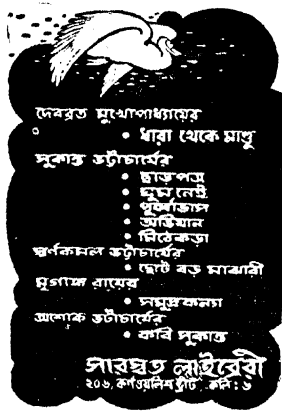 দেবব্রত মুখোপাধ্যায়ের
• ধারা থেকে মাণ্ডু
সুকান্ত ভট্টাচার্যের
• ছাড়পত্র
• ঘুম নেই
• পূর্ব্বাভাস
• অভিযান
• মিঠেকড়া
স্বর্ণকমল ভট্টাচার্যের
• ছোট বড় মাঝারী
মৃগাঙ্ক রায়ের
• সমুদ্রকন্যা
অশোক ভট্টাচার্যের
• কবি সুকান্ত
সারস্বত লাইব্রেরী
২০৬, কর্ণওয়ালিশ ষ্ট্রীট কলি : ৬